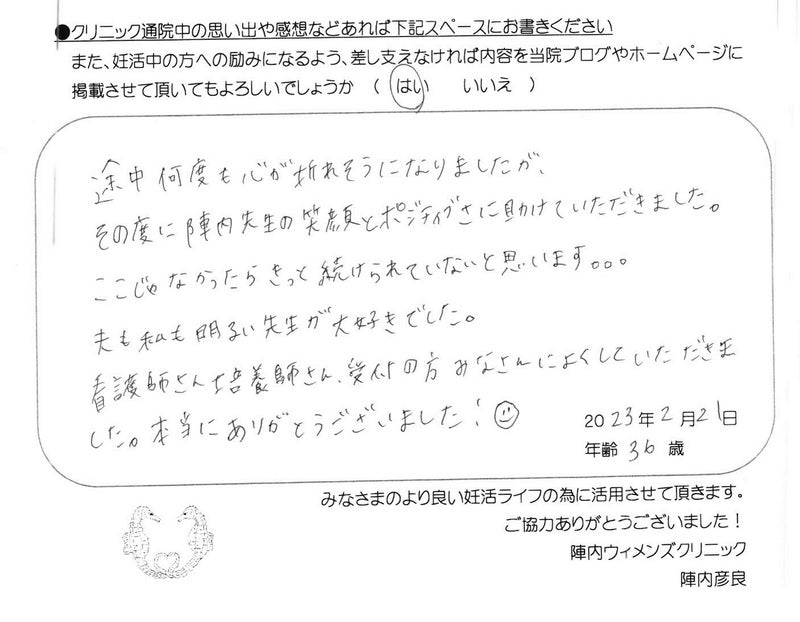 ●クリニック通院中の思い出や感想などあれば下記スペースにお書きください
また、妊活中の方への励みになるよう、差し支えなければ内容を当院ブログやホームページに
掲載させて頂いてもよろしいでしょうか （ はい いいえ ）
途中何度も心が折れそうになりましたが、
その度に陣内先生の笑顔とポジティブさに助けていただきました。
ここじゃなかったらきっと続けられていないと思います。。。
夫も私も明るい先生が大好きでした。
看護師さん、培養師さん、受付の方みなさんによくしていただきま
した。本当にありがとうございました!
2023年2月21日
年齢 36 歳
みなさまのより良い妊活ライフの為に活用させて頂きます。
ご協力ありがとうございました！
陣内ウィメンズクリニック
陣内彦良